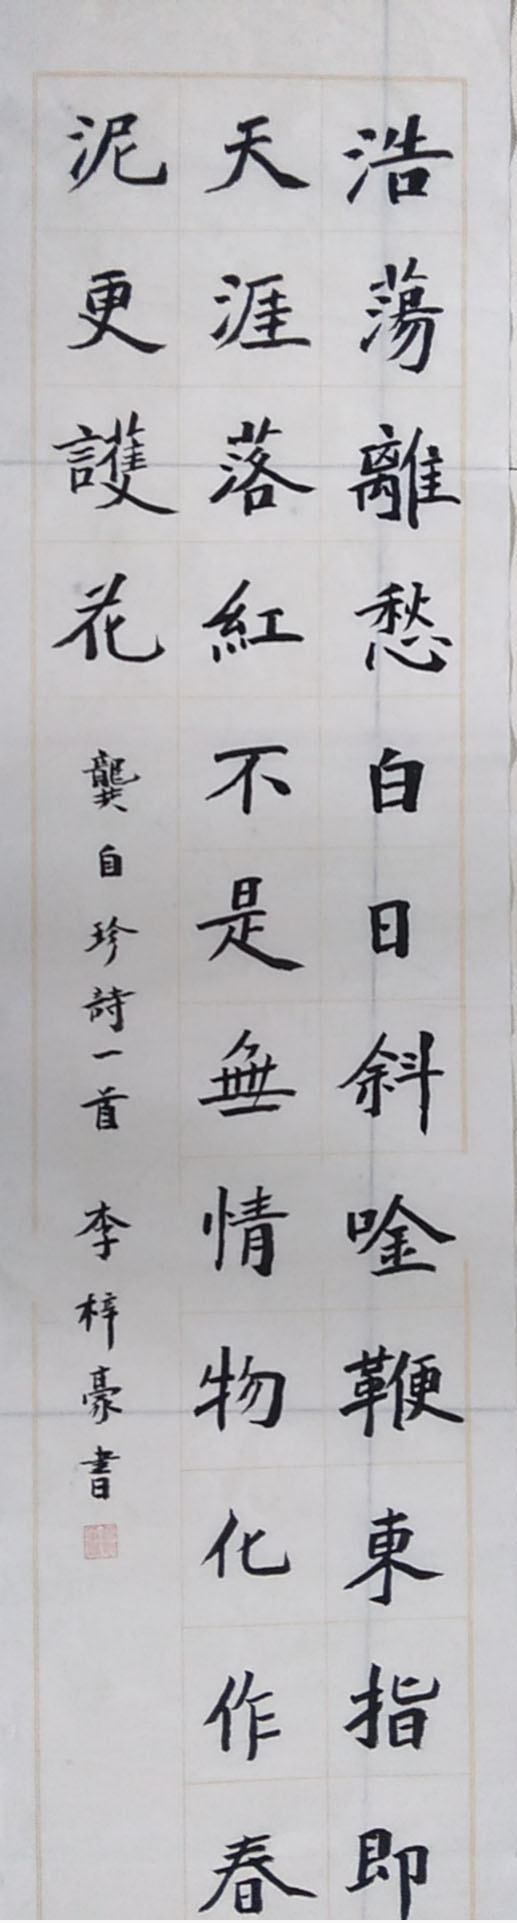 浩蕩離愁白日斜唫鞭東指即
天涯落紅不是無情物化作春
泥更護花 龔自珍詩一首 李梓豪書